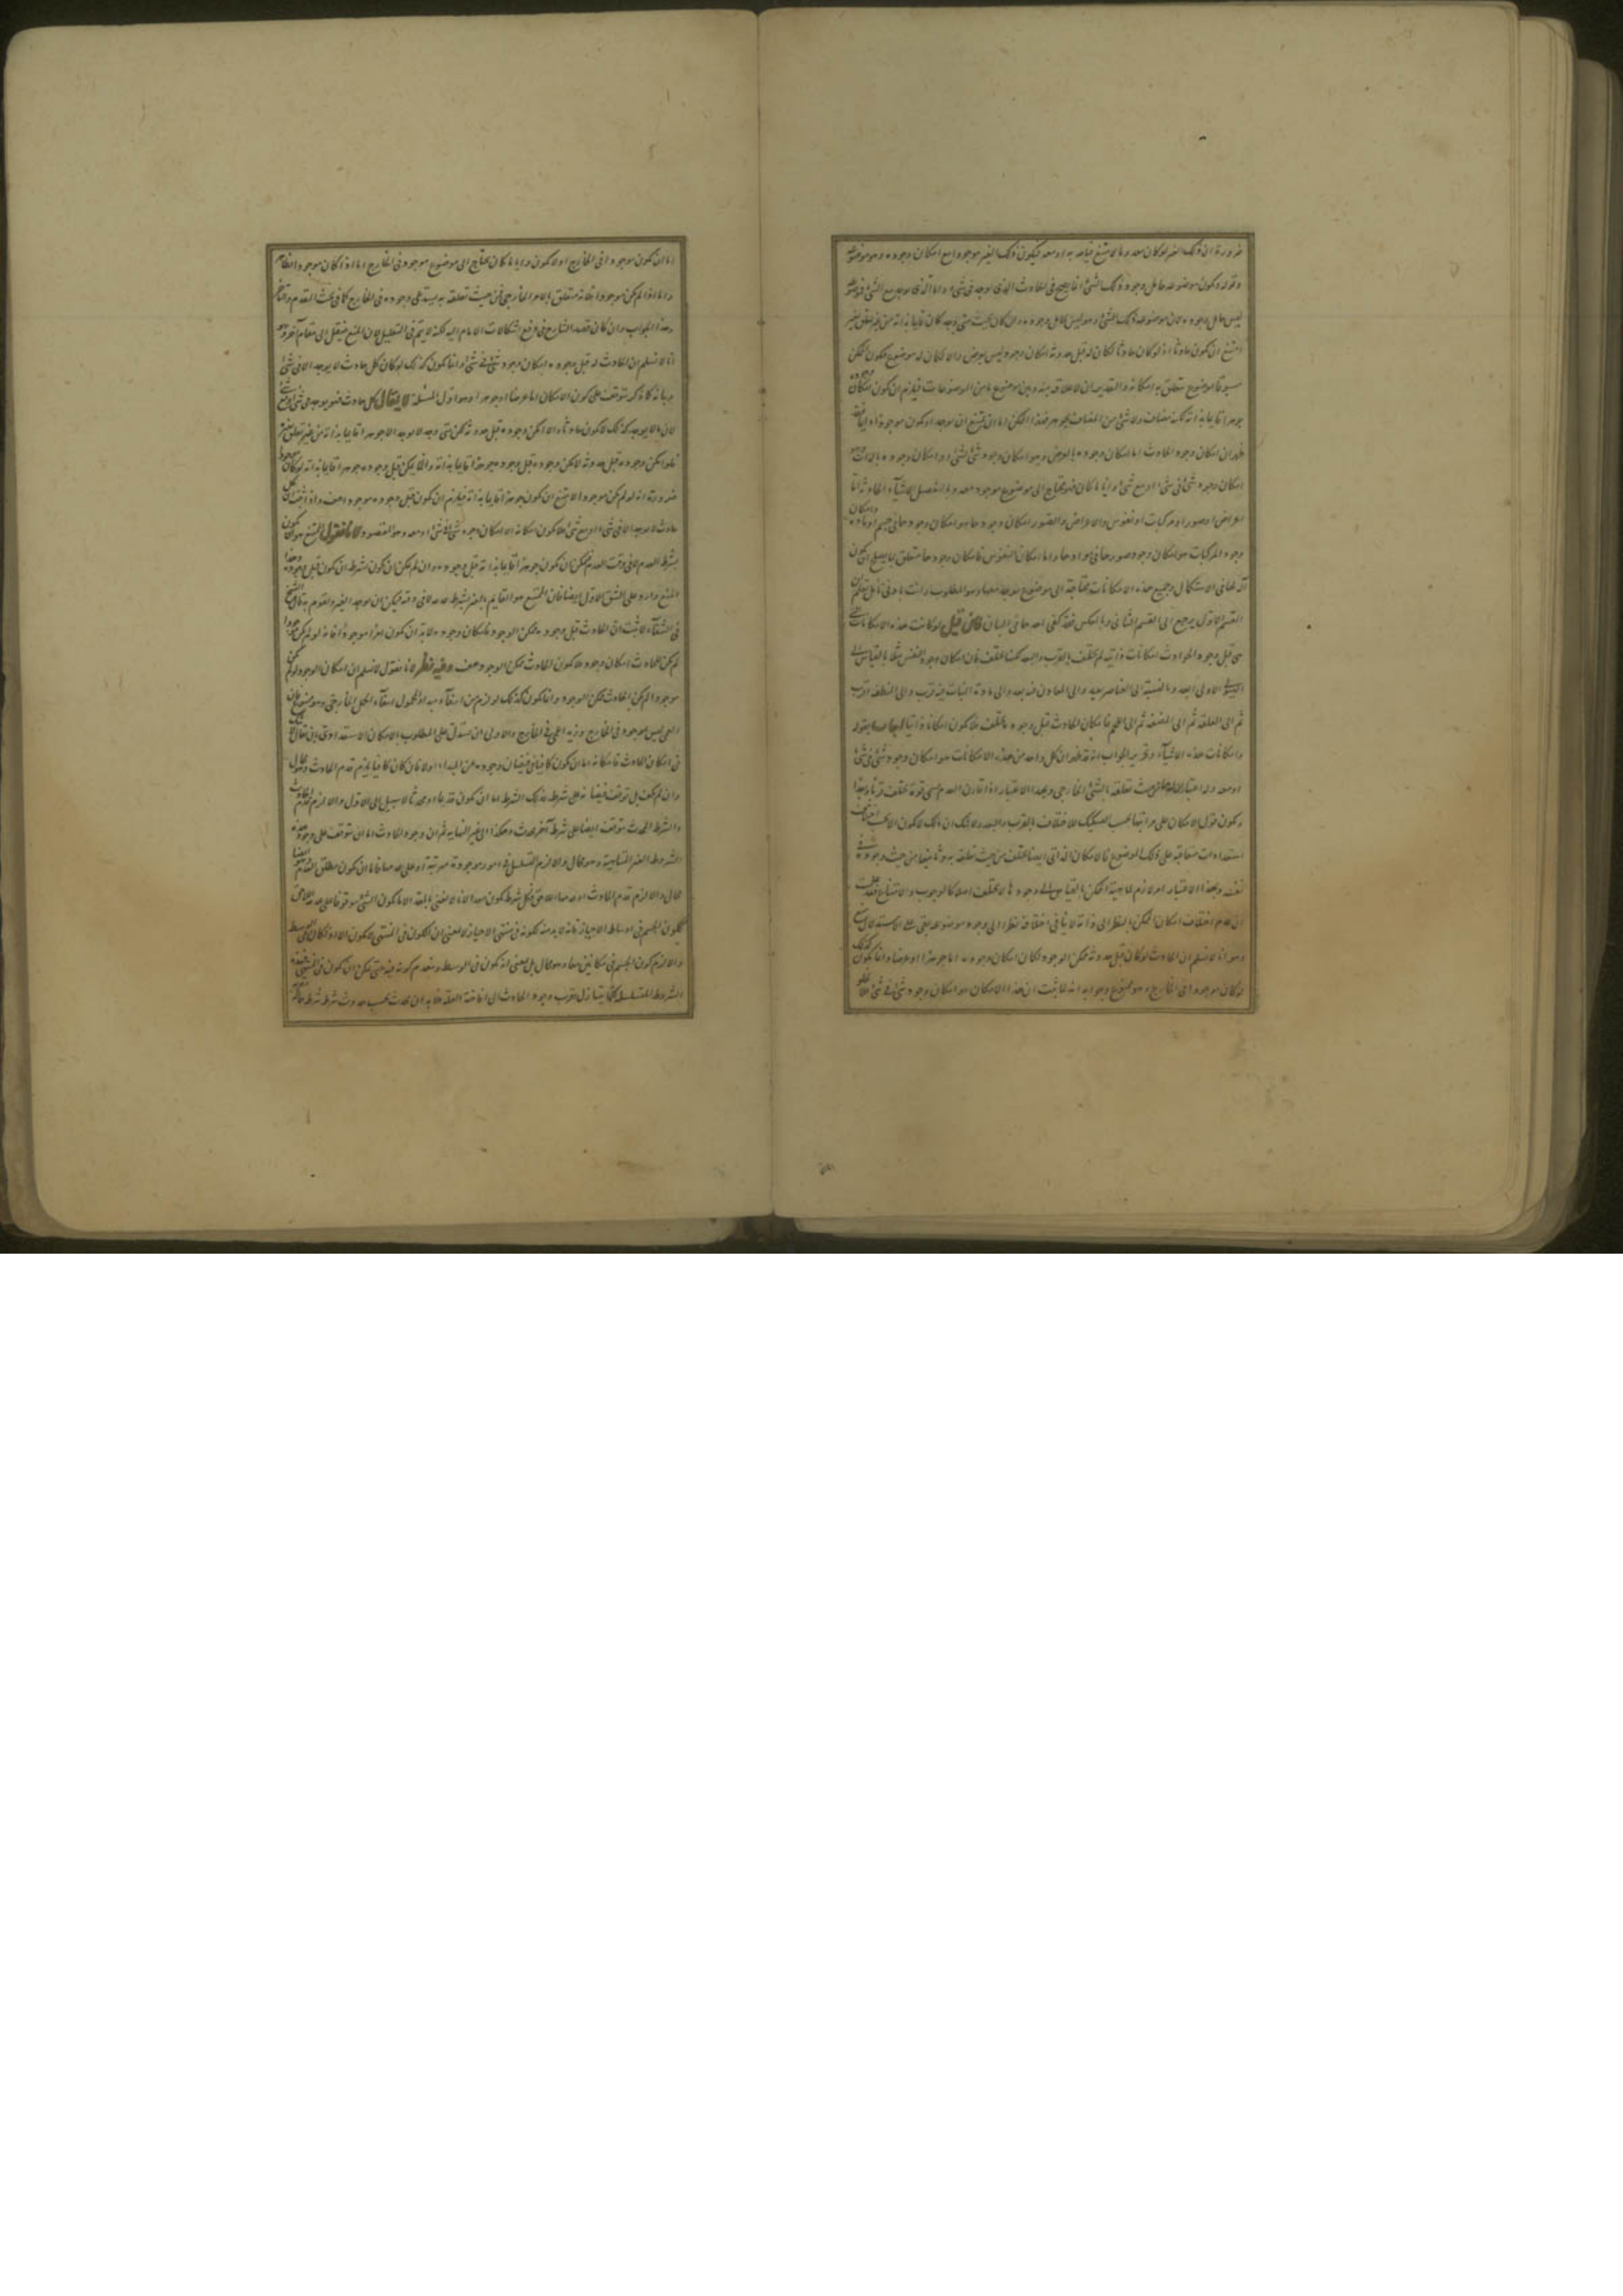 ضرورة ان ذلك الغير لو كان معدوما لامتنع قيامه به او معه فيكون ذلك الغير موجودا مع امكان وجوده وهو موضوعه
وقوله ويكون موضوعه حامل وجوده ذلك الشئ انما يصح فى الحادث الذى يوجد فى شئ واما الذى يوجد مع الشئ فموضوعه
ليس حامل وجوده لان موضوعه ذلك الشئ وهو ليس حامل وجوده وان كان بحيث متى وجد كان قايما بذاته من غير تعلق بغير
امتنع ان يكون حادثا اذ لو كان حادثا لكان له قبل حدوثه امكان وجود وليس بعرض والا لكان له موضوع فيكون الممكن
مسبوقا بموضوع متعلق به امكانه والتقدير ان لا علاقة بينه وبين موضوع ما من الموضوعات فيلزم ان يكون امكان وجوده
جوهرا قايما بذاته لكنه مضاف ولا شئ من المضاف بجوهر فهذا الممكن اما ان يمتنع ان يوجد او يكون موجودا دايما فقد
ظهر ان امكان وجود الحادث اما امكان وجوده بالعرض وهو امكان وجود شئ لشئ او امكان وجوده بالذات وهو
امكان وجود شئ فى شئ او مع شئ وايا ما كان فهو يحتاج الى موضوع موجود معه وبالتفصيل الاشياء الحادثة اما
اعراض او صور او مركبات او نفوس والاعراض والصور امكان وجودها هو امكان وجودها فى جسم او مادة وامكان
وجود المركبات هو امكان وجود صورها فى موادها واما امكان النفوس فامكان وجودها متعلق بما يصلح ان يكون
آلة لها فى الاستكمال وجميع هذه الامكانات محتاجة الى موضوع يوجد معها وهو المطلوب وانت بادنى تأمل تعلم ان
القسم الاول يرجع الى القسم الثانى وبالعكس فقد كفى احدهما فى البيان فان قيل لو كانت هذه الامكانات التى
هى قبل وجود الحوادث امكانات ذاتية لم تختلف بالقرب والبعد لكنها تختلف فان امكان وجود النفس مثلا بالقياس الى
الهيولى الاولى ابعد وبالنسبة الى العناصر بعيد والى المعادن فيه بعد والى مادة النبات فيه قرب والى النطفة اقرب
ثم الى العلقة ثم الى المضغة ثم الى اللحم فامكان الحادث قبل وجوده مختلف فلا يكون امكانا ذاتيا اجاب بقوله
وامكانات هذه الاشياء وتقرير الجواب انه قد ظهر ان كل واحد من هذه الامكانات هو امكان وجود شئ فى شئ
او معه وله اعتباران من حيث تعلقه بالشئ الخارجى وبهذا الاعتبار اذا قارن العدم سمى قوة تختلف قربا وبعدا
ويكون قول الامكان على مراتبها بحسب التشكيك للاختلاف بالقرب والبعد ولا شك ان ذلك لا يكون الا بحسب اختلاف
استعدادات متعاقبة على ذلك الموضوع فالامكان الذاتى ايضا مختلف من حيث تعلقه به وثانيهما من حيث وجوده فى
نفسه وبهذا الاعتبار امر لازم لماهية الممكن بالقياس الى وجودها لا يختلف اصلا كالوجوب والامتناع فقد علمت
ان عدم اختلاف امكان الممكن بالنظر الى ذاته لا ينافى اختلافه نظرا الى وجود موضوعه بقى على الاستدلال منع
وهو انا لا نسلم ان الحادث لو كان قبل حدوثه ممكن الوجود لكان امكان وجوده اما جوهرا او عرضا وانما يكون كذلك
لو كان موجودا فى الخارج وهو ممنوع وجوابه انه لما ثبت ان هذا الامكان هو امكان وجود شئ فى شئ فلا يخلو
اما ان يكون موجودا فى الخارج او لا يكون وايا ما كان يحتاج الى موضوع موجود فى الخارج اما اذا كان موجودا فظاهر
واما اذا لم يكن موجودا فلانه متعلق بالامر الخارجى فمن حيث تعلقه به يستدعى وجوده فى الخارج كما فى بحث التقدم والتاخر
وهذا الجواب وان كان قصد الشارح فى دفع اشكالات الامام اليه لكنه لا يتم فى التعليل لان المنع ينتقل الى مقام آخر وهو
انا لا نسلم ان الحادث له قبل وجوده امكان وجود شئ فى شئ وانما يكون كذلك لو كان كل حادث لا يوجد الا فى شئ
وبيانه كما ذكره يتوقف على كون الامكان اما عرضا او جوهرا وهو اول المسئلة لا يقال كل حادث فهو يوجد فى شئ او مع شئ
لان ما لا يوجد كذلك لا يكون حادثا والا لامكن وجوده قبل حدوثه لكن متى وجد لا يوجد الا جوهرا قايما بذاته من غير تعلق بغير
فلو امكن وجوده قبل حدوثه لامكن وجوده قبل وجوده جوهرا قايما بذاته وانما يمكن قبل وجوده جوهرا قايما بذاته لو كان موجودا
ضرورة انه لو لم يكن موجودا لامتنع ان يكون جوهرا قايما بذاته فيلزم ان يكون قبل وجوده موجودا هف واذ اثبت ان كل
حادث لا يوجد الا فى شئ او مع شئ فلا يكون امكانه الا امكان وجود شئ فى شئ او معه وهو المقصود لانا نقول الممتنع هو ان يكون
بشرط العدم لا فى وقت العدم فيمكن ان يكون جوهرا قايما بذاته قبل وجوده وان لم يمكن ان يكون بشرط ان يكون قبل وجوده وهذا
المنع وارد على الشق الاول ايضا فان الممتنع هو القايم بالغير بشرط عدمه لا فى وقته فيمكن ان يوجد الغير والقوم به قال الشيخ
فى الشفاء لما ثبت ان الحادث قبل وجوده ممكن الوجود فامكان وجوده لا بد ان يكون امرا موجودا فانه لو لم يكن موجودا
لم يكن للحادث امكان وجود فلا يكون الحادث ممكن الوجود هف وفيه نظر لانا نقول لا نسلم ان امكان الوجود لو لم يكن
موجودا لم يكن الحادث ممكن الوجود وانما يكون كذلك لو لزم من انتفاء مبدا المحمول انتفاء الحمل الخارجى وهو ممنوع فان
العمى ليس موجودا فى الخارج وزيد اعمى فى الخارج والاولى ان يستدل على المطلوب بالامكان الاستعدادى بان يقال
فى امكان الحادث فامكانه اما ان يكون كافيا فى فيضان وجوده من المبدا او لا فان كان كافيا يلزم قدم الحادث وهو محال
وان لم يكف بل توقف فيضانه على شرط فذلك الشرط اما ان يكون قديما او محدثا لا سبيل الى الاول والا لزم قدم الحادث
والشرط المحدث يتوقف ايضا على شرط آخر محدث وهكذا الى غير النهاية ثم ان وجود الحادث اما ان يتوقف على وجود هذه
الشروط الغير المتناهية وهو محال والا لزم التسلسل فى امور موجودة مرتبة او على عدمها فاما ان يكون مطلق العدم وهو ايضا
محال والا لزم قدم الحادث او عدمها اللاحق فكل شرط يكون معدا لانا لا نعنى بالمعد الا ما يكون الشئ موقوفا على عدمه اللاحق
ككون الجسم فى اوساط الاحياز فانه لا بد منه لكونه فى منتهى الاحياز لا بمعنى ان الكون فى المنتهى لا يكون الا اذا كان فى الوسط
والا لزم كون الجسم فى مكانين معا وهو محال بل بمعنى انه يكون فى الوسط وينعدم كونه فيه حتى يمكن ان يكون فى المنتهى فهذه
الشروط المتسلسلة كلما يتنازل يقرب وجود الحادث الى افاضة العلة فلا بد ان يحدث بحسب حدوث شرط شرط حالة